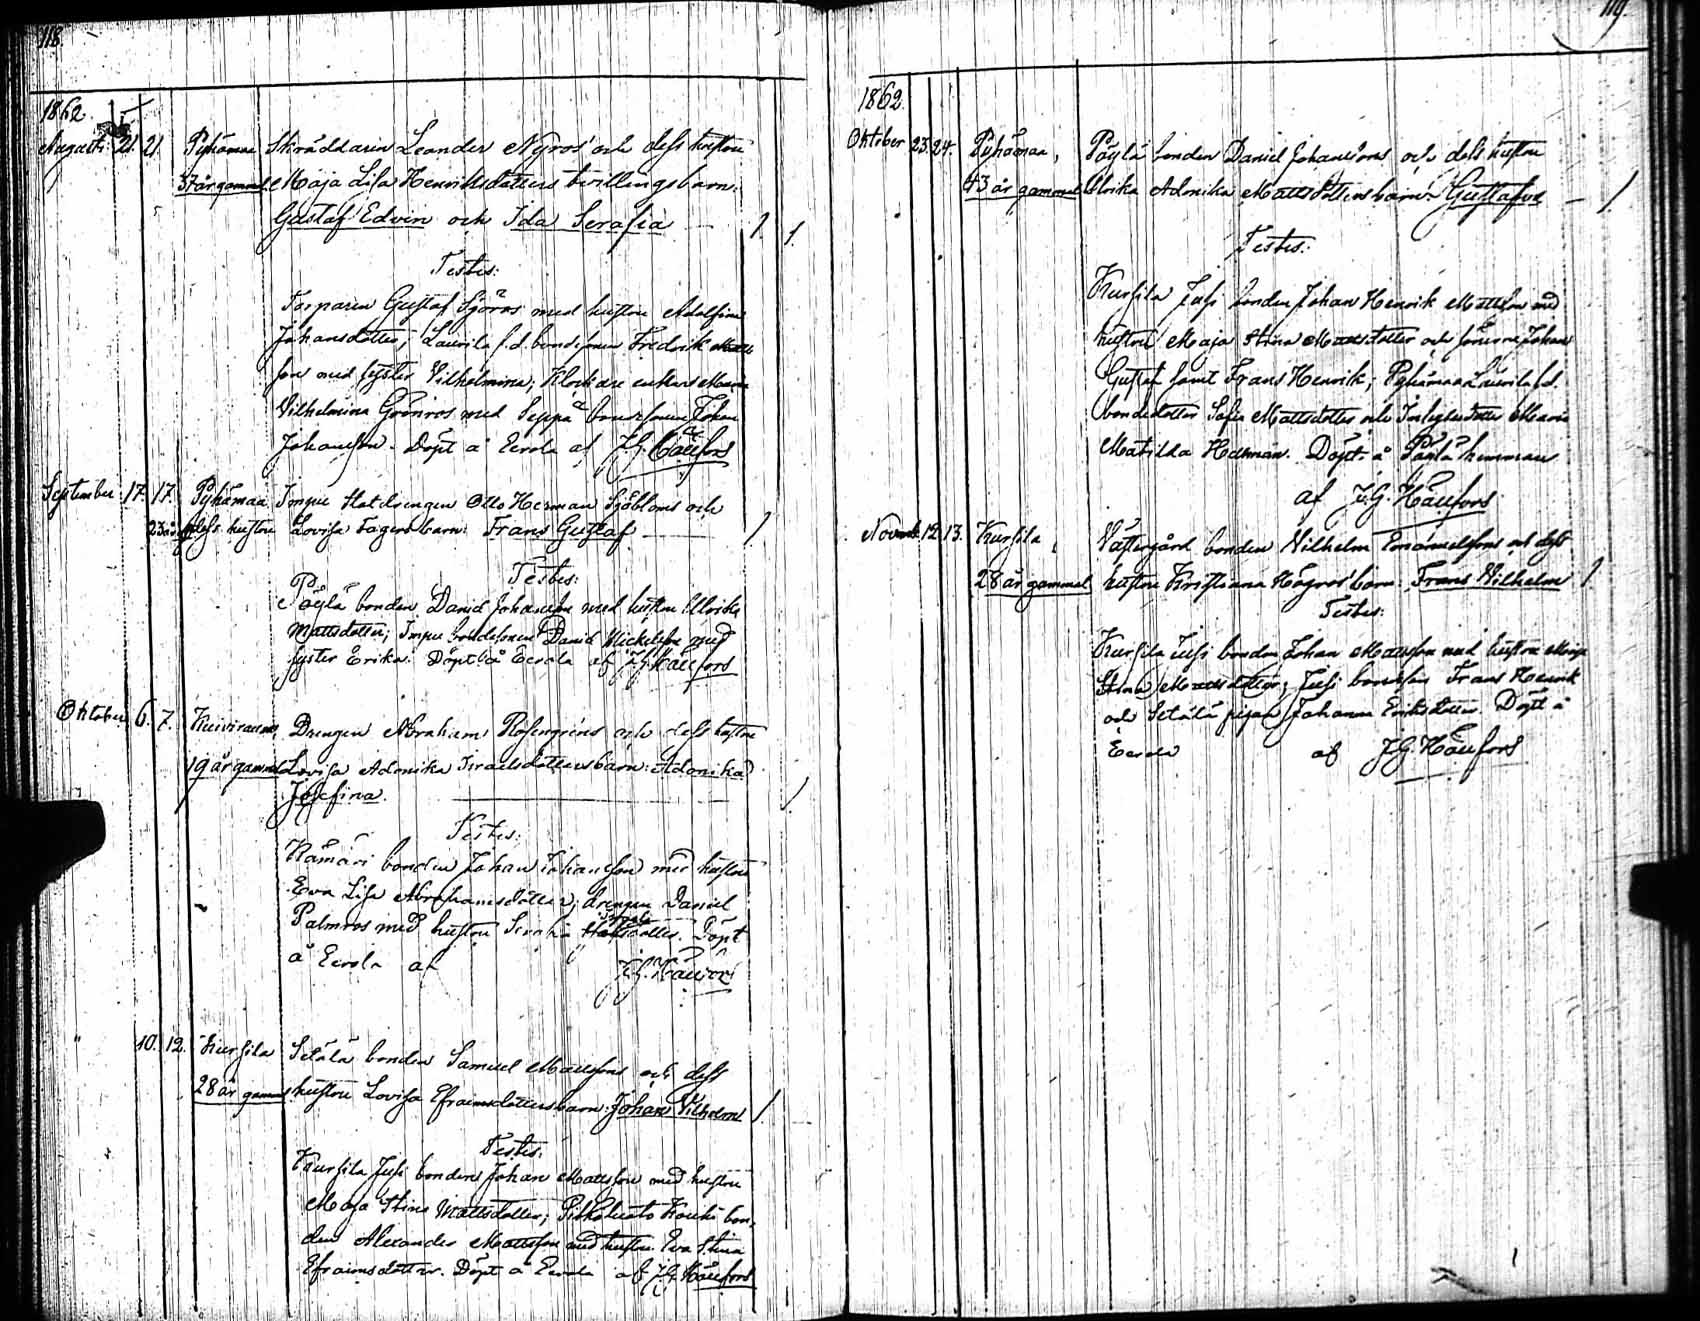 118.
1862.
Augusti 21. 21. Pyhämaa Skräddaren Leander Nyros' och dess hustru
37 år gammal Maja Lisa Henriksdotters tvillingsbarn:
Gustaf Edvin och Ida Serafia 1. 1.
Testes:
Torparen Gustaf Sjöros med hustru Adolfina
Johansdotter; Laurila f.d. bondesonen Fredrik Matts
son med syster Vilhelmina; Klockare enkan Maria
Vilhelmina Grönros med Seppä bondesonen Johan
Johansson. Döpt å Eerola af J.G. Hällfors
September 17. 17. Pyhämaa Impue Statdrengen Otto Herman Sjöbloms och
23 år dess hustru Lovisa Fagers barn: Frans Gustaf 1
Testes:
Pöylä bonden Daniel Johansson med hustru Ulrika
Mattsdotter; Impue bondesonen David Mickelsson med
syster Erika. Döpt å Eerola af J.G. Hällfors
Oktober 6. 7. Kuivirauma Drengen Abraham Rosengréns och dess hustru
19 år gammal Lovisa Adonika Israelsdotters barn: Adonika
Josefina. 1
Testes:
Hämäri bonden Johan Johansson med hustru
Eva Lisa Abrahamsdotter; drengen Daniel
Palmros med hustru Serafia dotter. Döpt
å Eerola af J.G. Hällfors
" 10. 12. Kursila Setälä bonden Samuel Mattssons och dess
28 år gammal hustru Lovisa Efraimsdotters barn: Johan Vilhelm 1
Testes:
Kursila Jussi bonden Johan Mattsson med hustru
Maja Stina Mattsdotter; Pitkäluoto Kouki bon-
den Alexander Mattsson med hustru Eva Stina
Efraimsdotter. Döpt å Eerola af J.G. Hällfors
119.
1862.
Oktober 23. 24. Pyhämaa, Pöylä bonden Daniel Johanssons och dess hustru
43 år gammal Ulrika Adonika Mattsdotters barn: Gustafva 1.
Testes:
Kursila Jussi bonden Johan Henrik Mattsson med
hustru Maja Stina Mattsdotter och sönerne Johan
Gustaf samt Frans Henrik; Pyhämaa Laurila f.d.
bondedotter Sofia Mattsdotter och Inhysesdotter Maria
Matilda Hedman. Döpt å Pöylä hemman
af J.G. Hällfors
Novemb. 12. 13. Kursila, Västergård bonden Vilhelm Emanuelssons och dess
28 år gammal hustru Kristiana Högros' barn: Frans Vilhelm 1
Testes:
Kursila Jussi bonden Johan Mattsson med hustru Maja
Stina Mattsdotter; Jussi bondeson Frans Henrik
och Setälä pigan Johanna Eriksdotter. Döpt å
Eerola af J.G. Hällfors